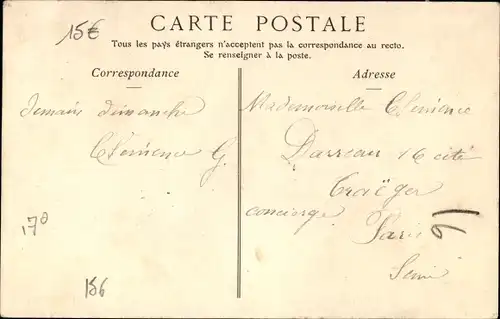 15€
CARTE POSTALE
Tous les pays étrangers n'acceptent pas la correspondance au recto.
Se renseigner à la poste.
Correspondance
Demain dimanche
Clémence G.
170
156
Adresse
Mademoiselle Clémence
Darreau 16 cité
Traëger
concierge
Paris
Seine